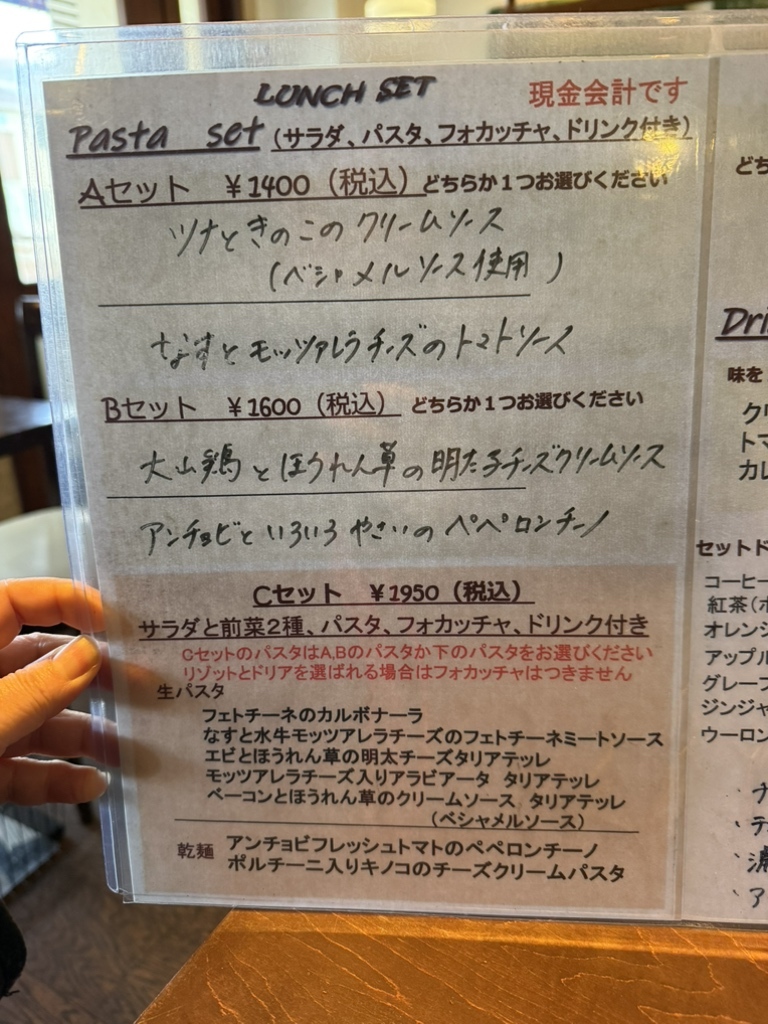 LUNCH SET
現金会計です
Pasta set (サラダ、パスタ、フォカッチャ、ドリンク付き)
Aセット ￥1400（税込）どちらか１つお選びください
ツナときのこのクリームソース
(ベシャメルソース使用)
なすとモッツァレラチーズのトマトソース
Bセット ￥1600（税込） どちらか１つお選びください
大山鶏とほうれん草の明太子チーズクリームソース
アンチョビといろいろやさいのペペロンチーノ
Cセット ￥1950（税込）
サラダと前菜２種、パスタ、フォカッチャ、ドリンク付き
CセットのパスタはA,Bのパスタか下のパスタをお選びください
リゾットとドリアを選ばれる場合はフォカッチャはつきません
生パスタ
フェトチーネのカルボナーラ
なすと水牛モッツアレラチーズのフェトチーネミートソース
エビとほうれん草の明太チーズタリアテッレ
モッツアレラチーズ入りアラビアータ タリアテッレ
ベーコンとほうれん草のクリームソース タリアテッレ
（ベシャメルソース）
乾麺 アンチョビフレッシュトマトのペペロンチーノ
ポルチーニ入りキノコのチーズクリームパスタ
どち
Dri
味を
クリ
トマ
カレ
セットド
コーヒー
紅茶（ホ
オレンジ
アップル
グレープ
ジンジャ
ウーロン